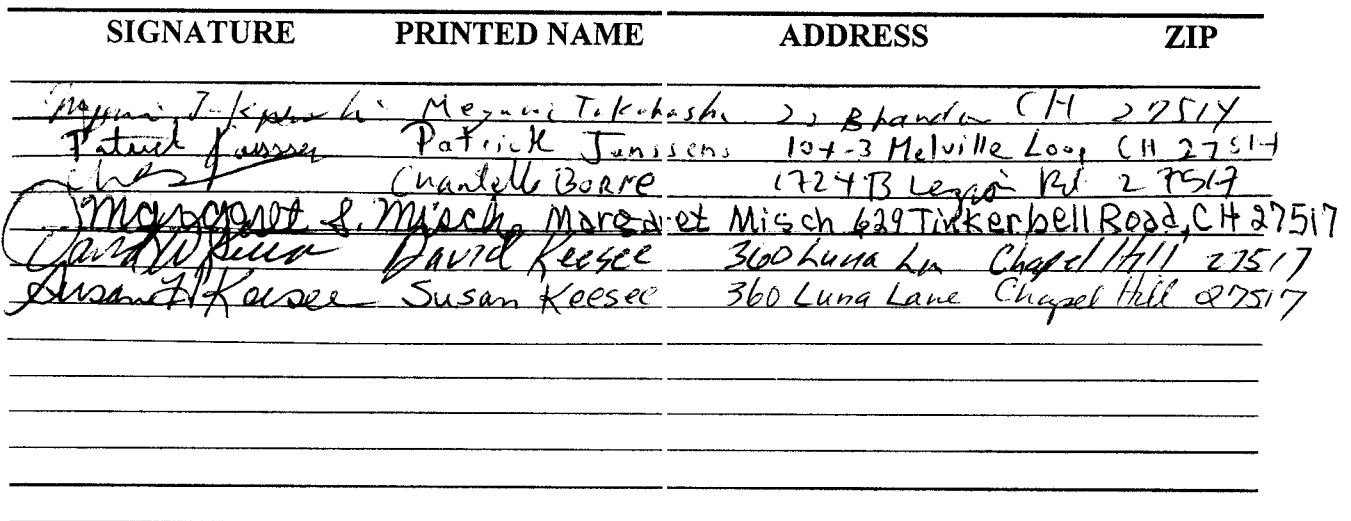 SIGNATURE PRINTED NAME ADDRESS ZIP
Megumi Takahashi 22 CH 27514
Patrick Janssens Patrick Janssens 104-3 Melville Loop CH 27514
Chantelle Borre 1724 B Legion Rd 27517
Margaret S. Misch Margaret Misch 629 Tinkerbell Road, CH 27517
David Keesee David Keesee 360 Luna Ln Chapel Hill 27517
Susan H Keesee Susan Keesee 360 Luna Lane Chapel Hill 27517